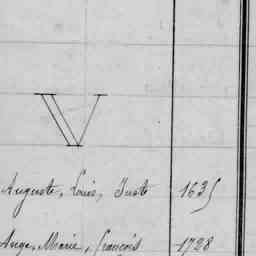 V
Auguste, Louis, Juste 1635
Ange, Marie, François 1728